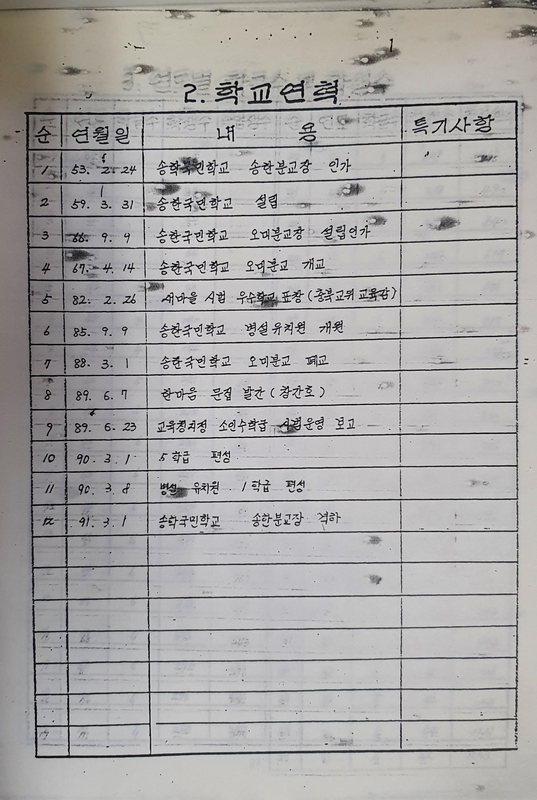 1
2. 학교연혁
순 연월일 내 용 특기사항
1 53. 2. 24 송학국민학교 송한분교장 인가
2 59. 3. 31 송한국민학교 설립
3 66. 9. 9 송한국민학교 오미분교장 설립인가
4 67. 4. 14 송한국민학교 오미분교 개교
5 82. 2. 26 새마을 시범 우수학교 표창 (충북교위 교육감)
6 85. 9. 9 송한국민학교 병설유치원 개원
7 88. 3. 1 송한국민학교 오미분교 폐교
8 89. 6. 7 한마음 문집 발간 (창간호)
9 89. 6. 23 교육청지정 소인수학급 시범운영 보고
10 90. 3. 1 5학급 편성
11 90. 3. 8 병설 유치원 1학급 편성
12 91. 3. 1 송학국민학교 송한분교장 격하